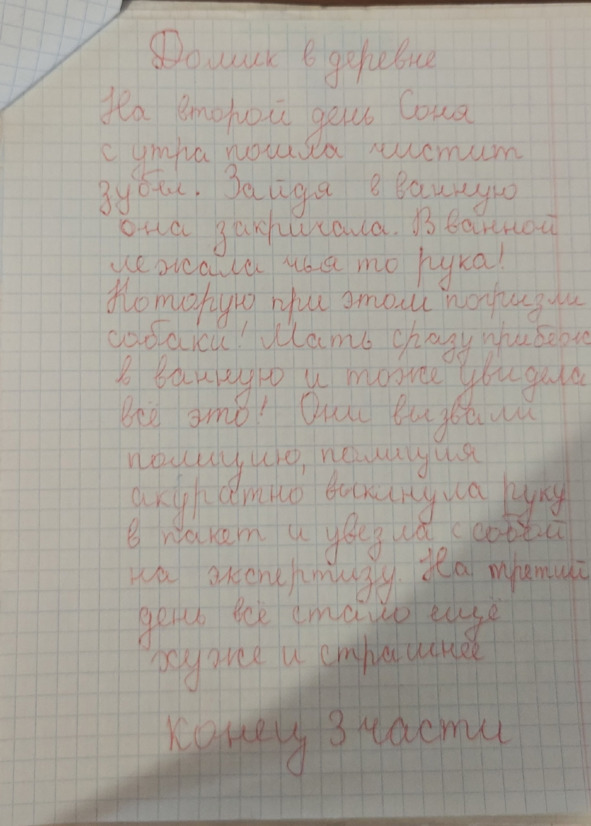 Домик в деревне
На второй день Соня
с утра пошла чистит
зубы. Зайдя в ванную
она закричала. В ванной
лежала чья то рука!
Которую при этом погризли
собаки! Мать сразу прибежа
в ванную и тоже увидела
всё это! Они вызвали
полицию, полиция
акуратно выкинула руку
в пакет и увезла с собой
на экспертизу. На третий
день всё стало ещё
хуже и страшнее
Конец 3 части